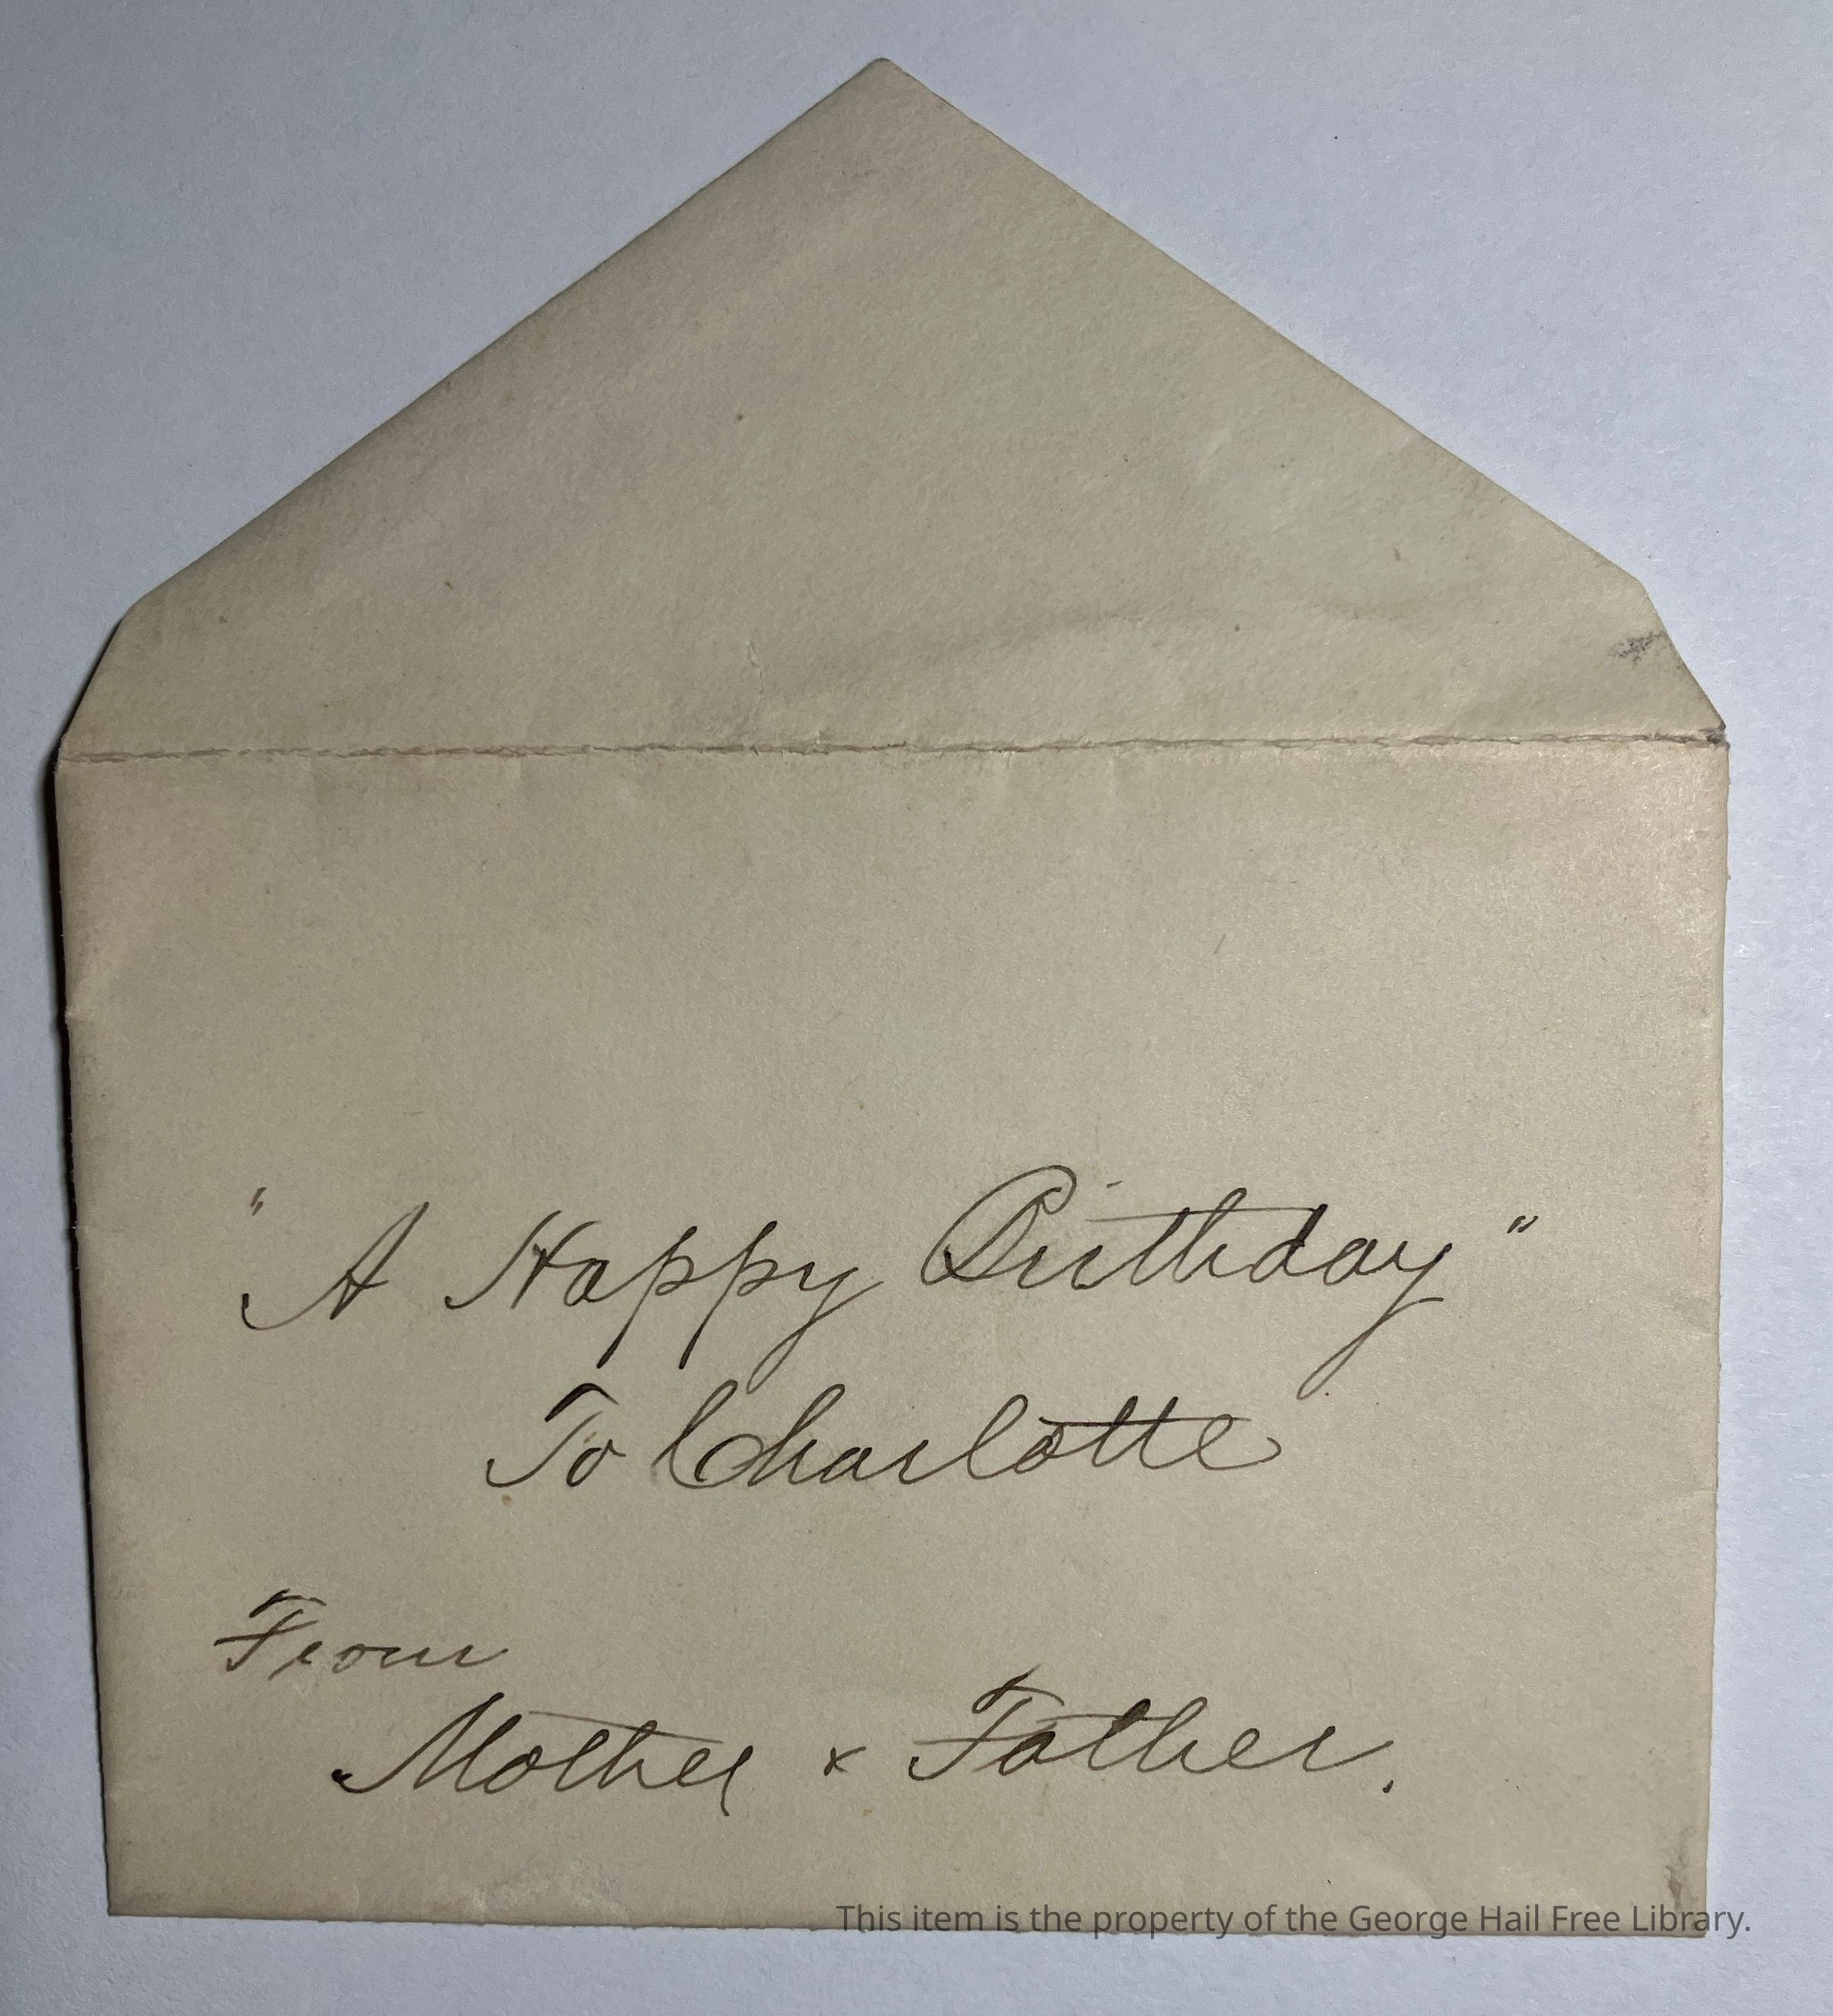 "A Happy Birthday"
To Charlotte
From
Mother & Father.
This item is the property of the George Hail Free Library.